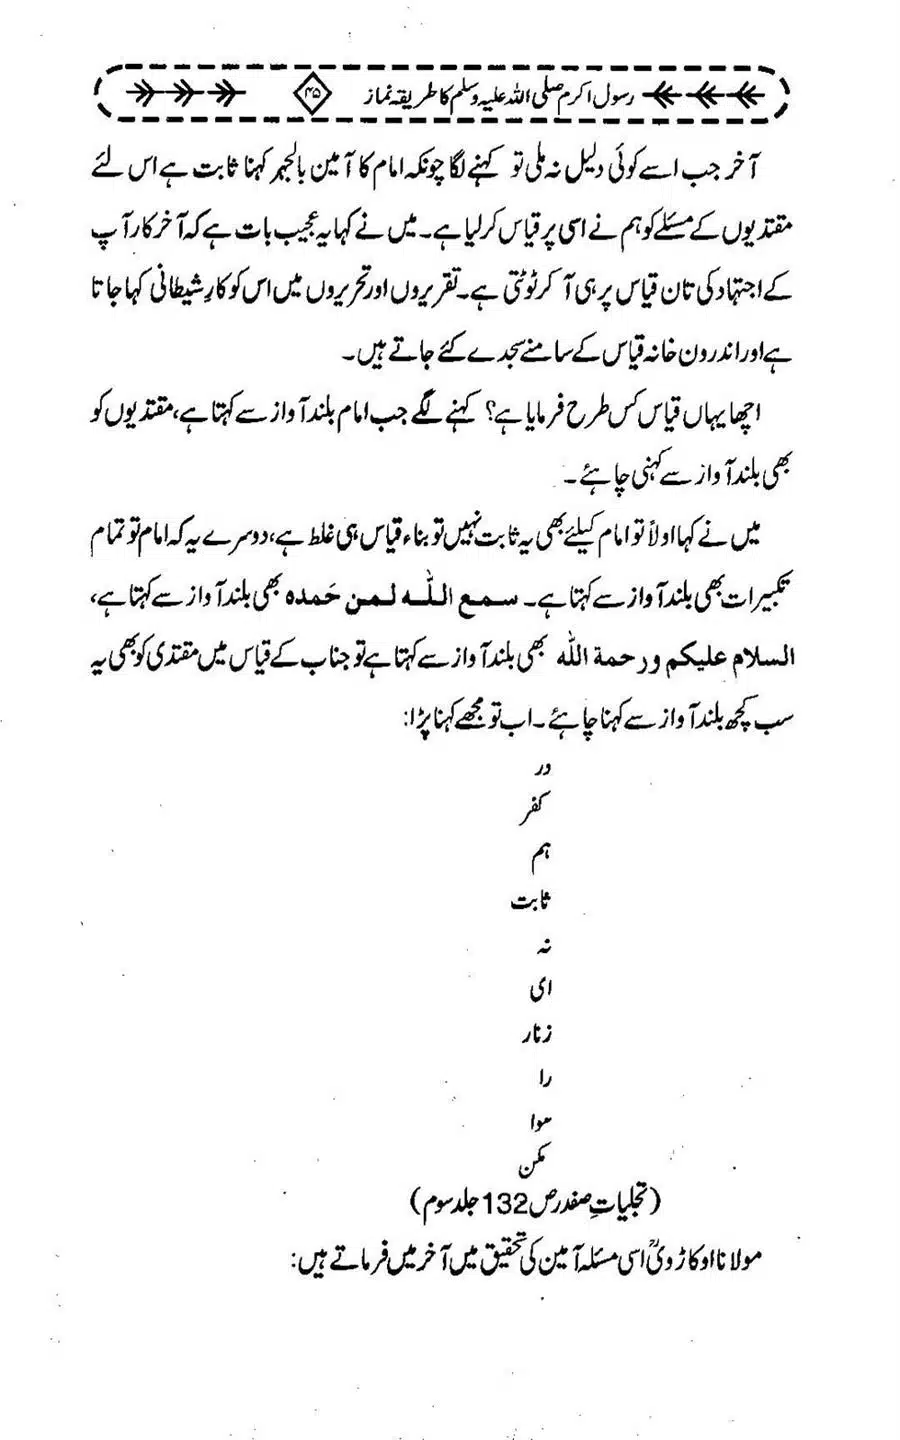 رسول اکرم صلی اللہ علیہ وسلم کا طریقہ نماز ۴۵
آخر جب اسے کوئی دلیل نہ ملی تو کہنے لگا چونکہ امام کا آمین بالجہر کہنا ثابت ہے اس لئے
مقتدیوں کے مسئلے کو ہم نے اسی پر قیاس کر لیا ہے۔ میں نے کہا یہ عجیب بات ہے کہ آخر کار آپ
کے اجتہاد کی تان قیاس پر ہی آ کر ٹوٹتی ہے۔ تقریروں اور تحریروں میں اس کو کارِ شیطانی کہا جاتا
ہے اور اندرون خانہ قیاس کے سامنے سجدے کئے جاتے ہیں۔
اچھا یہاں قیاس کس طرح فرمایا ہے؟ کہنے لگے جب امام بلند آواز سے کہتا ہے، مقتدیوں کو
بھی بلند آواز سے کہنی چاہئے۔
میں نے کہا اولاً تو امام کیلئے بھی یہ ثابت نہیں تو بناء قیاس ہی غلط ہے، دوسرے یہ کہ امام تو تمام
تکبیرات بھی بلند آواز سے کہتا ہے۔ سمع اللّٰہ لمن حَمدہ بھی بلند آواز سے کہتا ہے،
السلام علیکم ورحمة اللّٰه بھی بلند آواز سے کہتا ہے تو جناب کے قیاس میں مقتدی کو بھی یہ
سب کچھ بلند آواز سے کہنا چاہئے۔ اب تو مجھے کہنا پڑا:
در
کفر
ہم
ثابت
نہ
ای
زنار
را
موا
مکن
(تجلیاتِ صفدر ص 132 جلد سوم)
مولانا اوکاڑویؒ اسی مسئلہ آمین کی تحقیق میں آخر میں فرماتے ہیں: